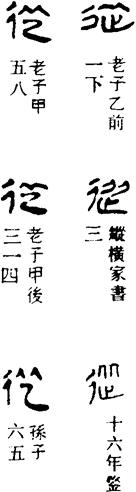 從
老子乙前
一下
從
縱橫家書
三
從
十六年
從
老子甲
五八
從
老子甲後
三一四
從
孫子
六五